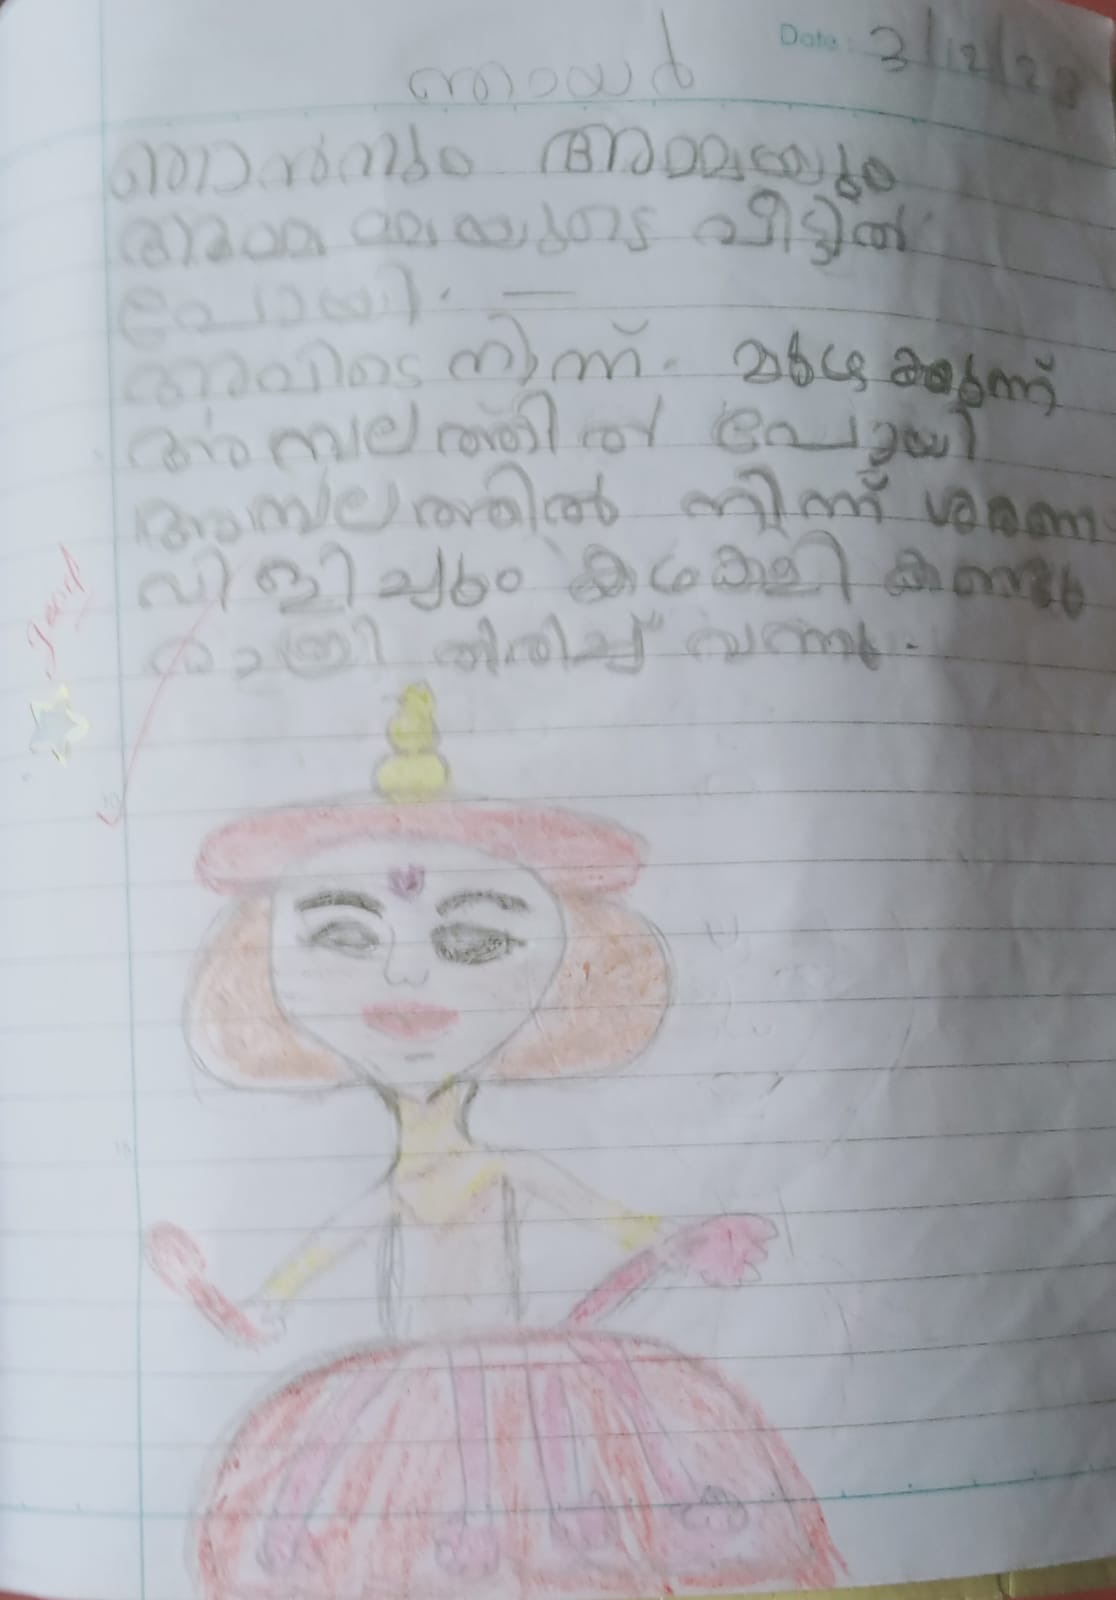 Date: 3/12/23
ഞായർ
ഞാനും അമ്മയും
അമ്മമ്മയുടെ വീട്ടിൽ
പോയി. —
അവിടെ നിന്ന്.
അമ്പലത്തിൽ പോയി
അമ്പലത്തിൽ നിന്ന് ശരണ
വിളിച്ചും കഥകളി കണ്ടും
രാത്രി തിരിച്ച് വന്നു.